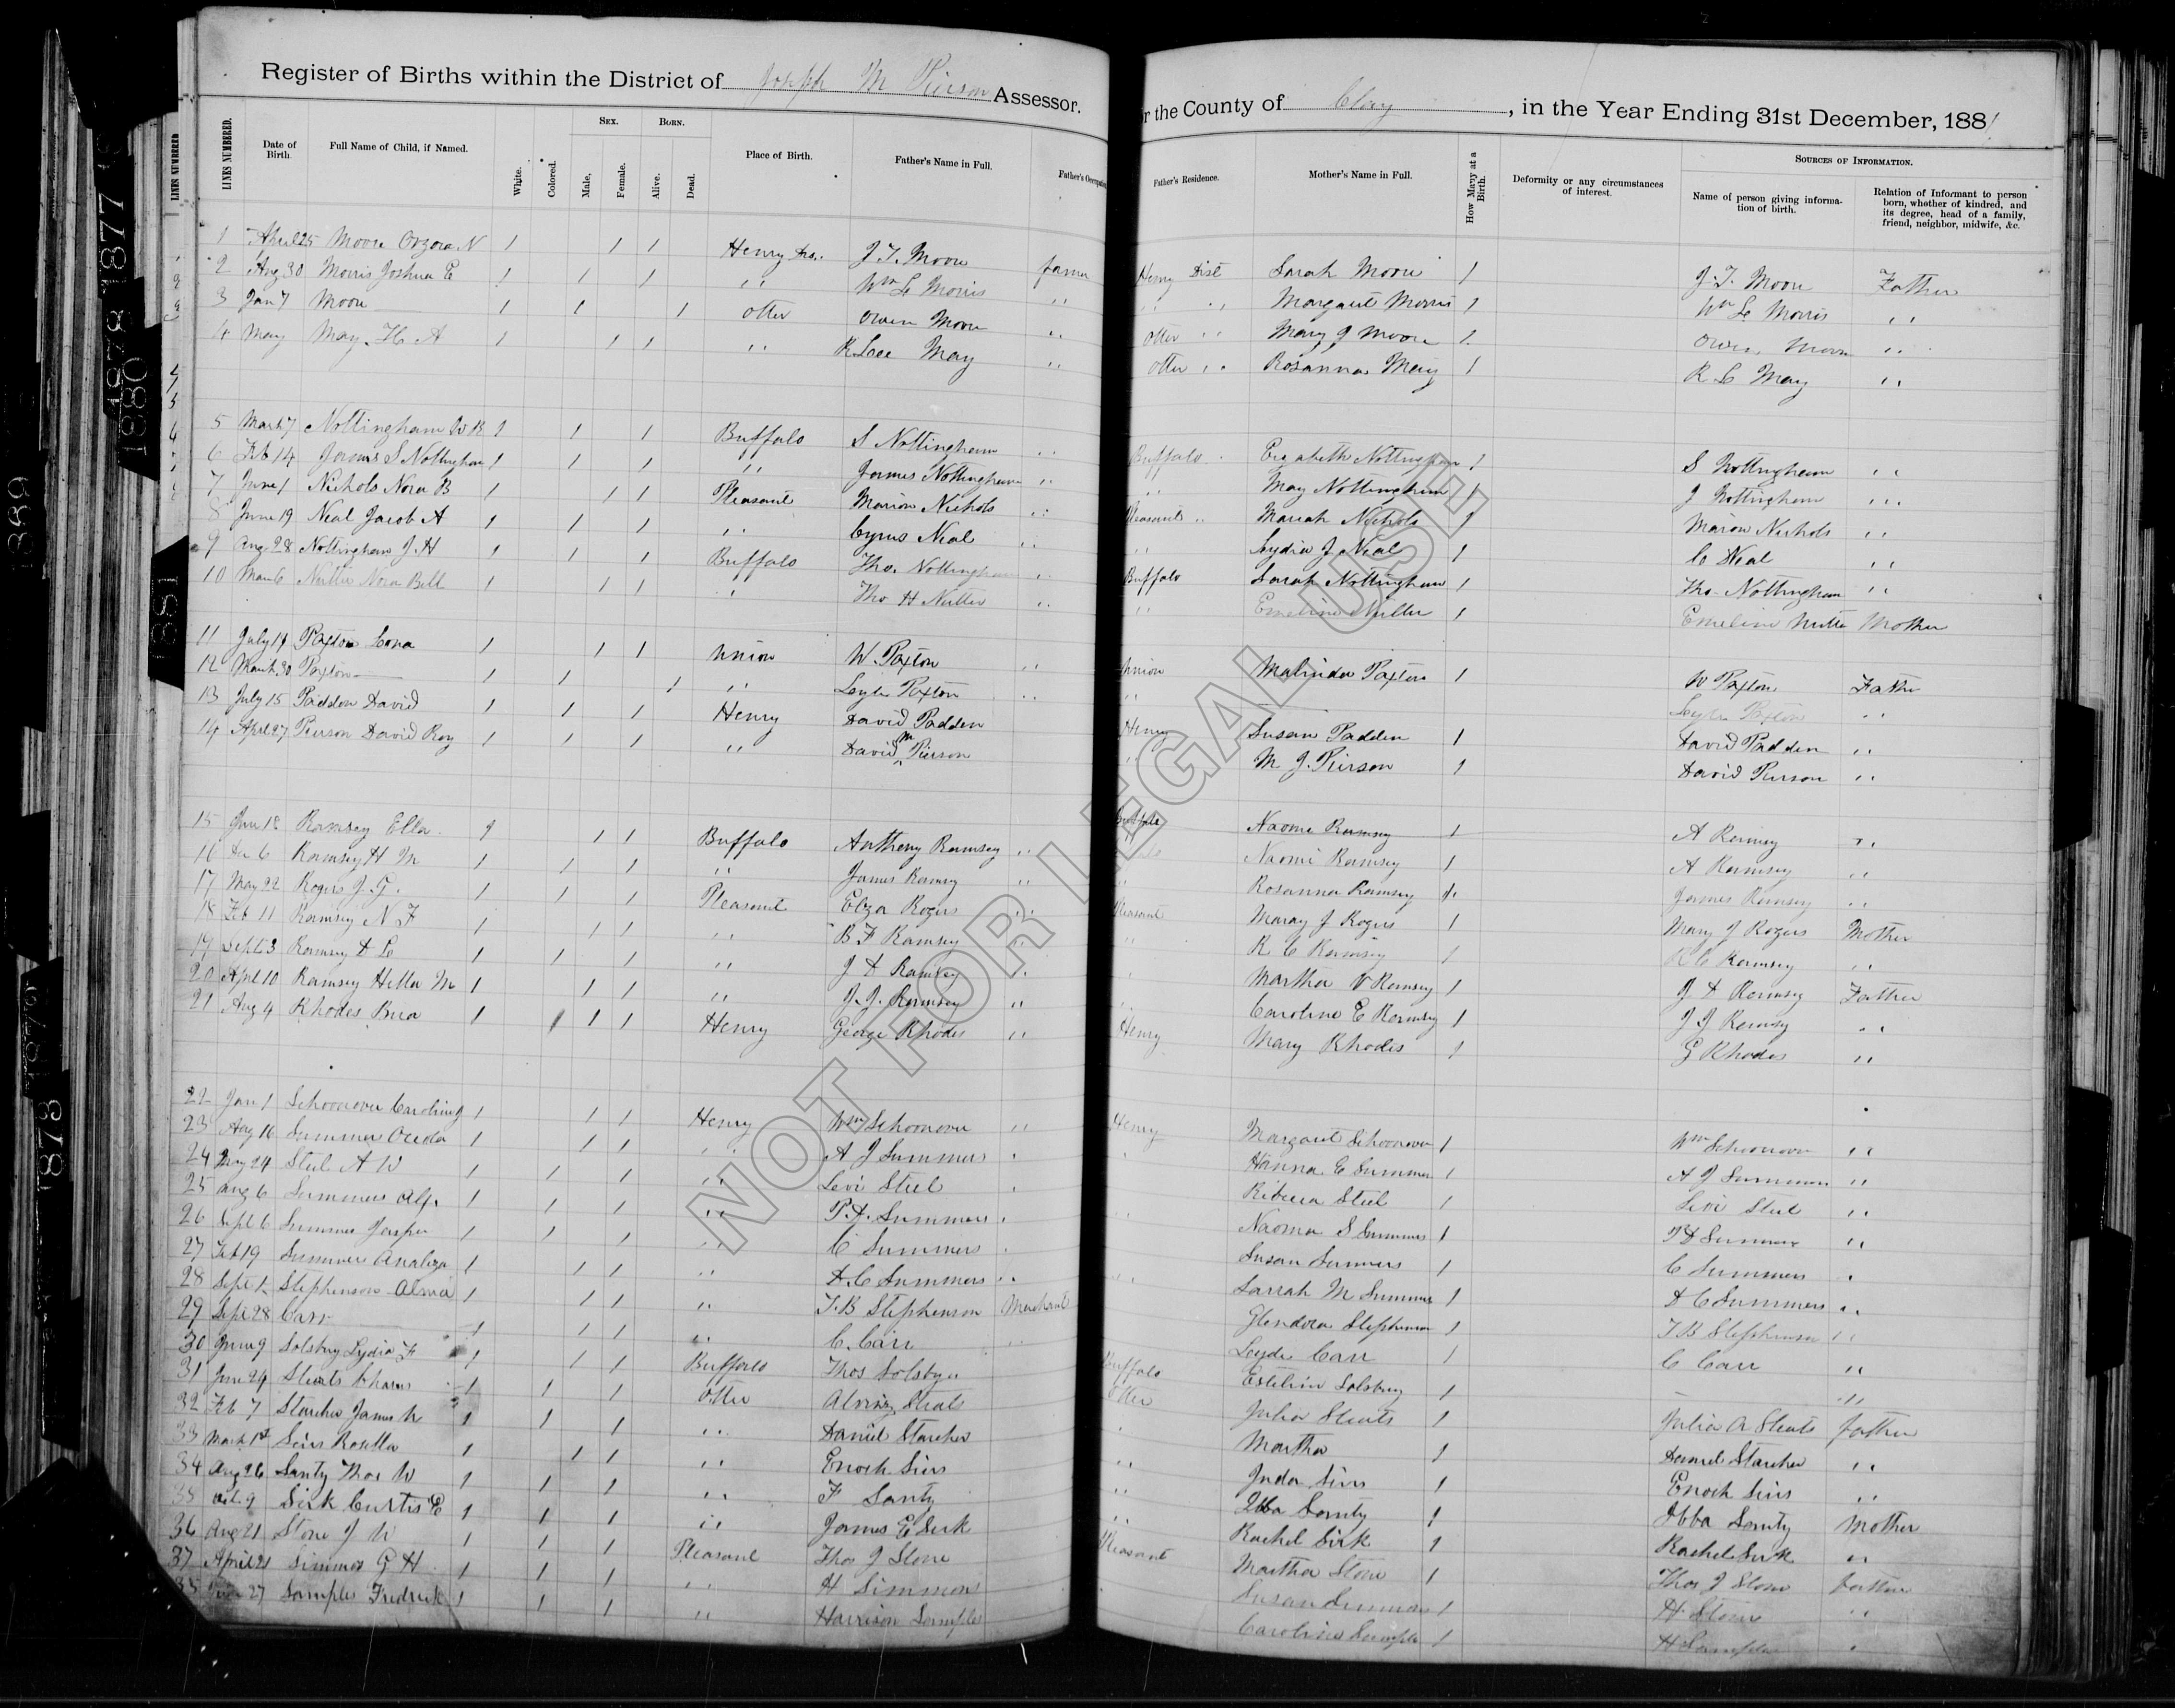 Register of Births within the District of Joseph M Pierson Assessor.
for the County of Clay, in the Year Ending 31st December, 1881
LINES NUMBERED. Date of Birth. Full Name of Child, if Named. White. Colored. SEX. Male, Female. BORN. Alive. Dead. Place of Birth. Father's Name in Full. Father's Occupation
Father's Residence. Mother's Name in Full. How Many at a Birth. Deformity or any circumstances of interest. SOURCES OF INFORMATION. Name of person giving information of birth. Relation of Informant to person born, whether of kindred, and its degree, head of a family, friend, neighbor, midwife, &c.
1 April 25 Moore Orzora N 1 1 1 Henry Dis. J. T. Moore farmer Henry Dist Sarah Moore 1 J. T. Moore Father
2 Aug 30 Morris Joshua E 1 1 1 " Wm L Morris " " " Margaret Morris 1 Wm L Morris "
3 Jan 7 Moore 1 1 1 Otter Owen Moore " Otter " Mary J Moore 1 Owen Moore "
4 May May. H. A 1 1 1 " R Lee May " Otter " Rosanna May 1 R L May "
5 March 7 Nottingham W B 1 1 1 Buffalo S Nottingham " Buffalo Elizabeth Nottingham 1 S Nottingham "
6 Feb 14 James S Nottingham 1 1 1 " James Nottingham " " May Nottingham 1 J Nottingham "
7 June 1 Nichols Nora B 1 1 1 Pleasant Marion Nichols " Pleasant " Mariah Nichols 1 Marion Nichols "
8 June 19 Neal Jacob A 1 1 1 " Cyrus Neal " " Lydia J Neal 1 C Neal "
9 Aug 28 Nottingham J. H 1 1 1 Buffalo Tho. Nottingham " Buffalo Sarah Nottingham 1 Tho- Nottingham "
10 Mar 6 Nutter Nora Bell 1 1 1 " Tho H Nutter " " Emeline Nutter 1 Emeline Nutter Mother
11 July 19 Paxton Cona 1 1 1 Union W. Paxton " Union Malinda Paxton 1 W Paxton Father
12 March 30 Paxton 1 1 1 " Lyle Paxton " " Lyle Paxton "
13 July 15 Padden David 1 1 1 Henry David Padden Henry Susan Padden 1 David Padden "
14 April 27 Pierson David Roy 1 1 1 " David M Pierson " M J. Pierson 1 David Pierson "
15 Ramsey Ella 1 1 1 Buffalo Anthony Ramsey " Buffalo Naomi Ramsey 1 A Ramsey "
16 Dec 6 Ramsey H M 1 1 1 " James Ramsey " Naomi Ramsey 1 A Ramsey "
17 May 22 Rogers J. G. 1 1 1 Pleasant Eliza Rogers " Rosanna Ramsey 1 James Ramsey "
18 Feb 11 Ramsey N F 1 1 1 " B F Ramsey " Pleasant Maray J Rogers 1 Mary J Rogers Mother
19 Sept 3 Ramsey D L 1 1 1 " J D Ramsey " " R C Ramsey 1 R C Ramsey "
20 April 10 Ramsey Hella M 1 1 1 " J. J. Ramsey " " Martha V Ramsey 1 J D Ramsey Father
21 Aug 4 Rhodes 1 1 1 Henry George Rhodes " Caroline E Ramsey 1 J J Ramsey "
Henry Mary Rhodes 1 G Rhodes "
22 Jan 1 Schoonover Caroline 1 1 1 Henry Wm Schoonover " Henry Margaret Schoonover 1 Wm Schoonover "
23 Aug 16 Summers Oreda 1 1 1 " A J Summers " Hanna E Summers 1 A J Summers "
24 Steel A W 1 1 1 " Levi Steel Rebecca Steel 1 Levi Steel "
25 Aug 6 Summers Alf. 1 1 1 " P. D. Summers Naoma S Summers 1 P D Summers "
26 Sept 6 Summers Jasper 1 1 1 " C Summers Susan Summers 1 C Summers "
27 Feb 19 Summers Analiza 1 1 1 " D. C Summers " Sarrah M Summers 1 D C Summers "
28 Sept 1 Stephenson Alma 1 1 1 " T. B Stephenson Merchant Glendora Stephenson 1 T B Stephenson "
29 Sept 28 Carr 1 1 1 " C. Carr " Leyde Carr 1 C Carr "
30 June 9 Solsbry Lydia F 1 1 1 Buffalo Thos Solsbry Buffalo Esteline Solsbry 1 "
31 June 24 Sleats 1 1 1 Otter Alvin Sleats Otter Julia Sleats 1 Julia A Sleats father
32 Feb 7 Starcher James W 1 1 1 " Daniel Starcher Martha 1 Daniel Starcher "
33 March 1st Sirs Rosetta 1 1 1 " Enoch Sirs " Juda Sirs 1 Enoch Sirs "
34 Aug 26 Santy Thos W 1 1 1 " F Santy " Ibba Santy 1 Ibba Santy Mother
35 Oct 9 Sirk Curtis E 1 1 1 " James E Sirk " Rachel Sirk 1 Rachel Sirk "
36 Aug 21 Stone J W 1 1 1 Pleasant Thos J Stone Pleasant Martha Stone 1 Thos J Stone father
37 April 21 Simmos G H 1 1 1 " H Simmons Susan Simmons 1 H Stone "
38 27 Samples Fredrick 1 1 1 " Harrison Samples Caroline Samples 1 H Samples "
1877
1878
1880
1881
1889
1878
NOT FOR LEGAL USE